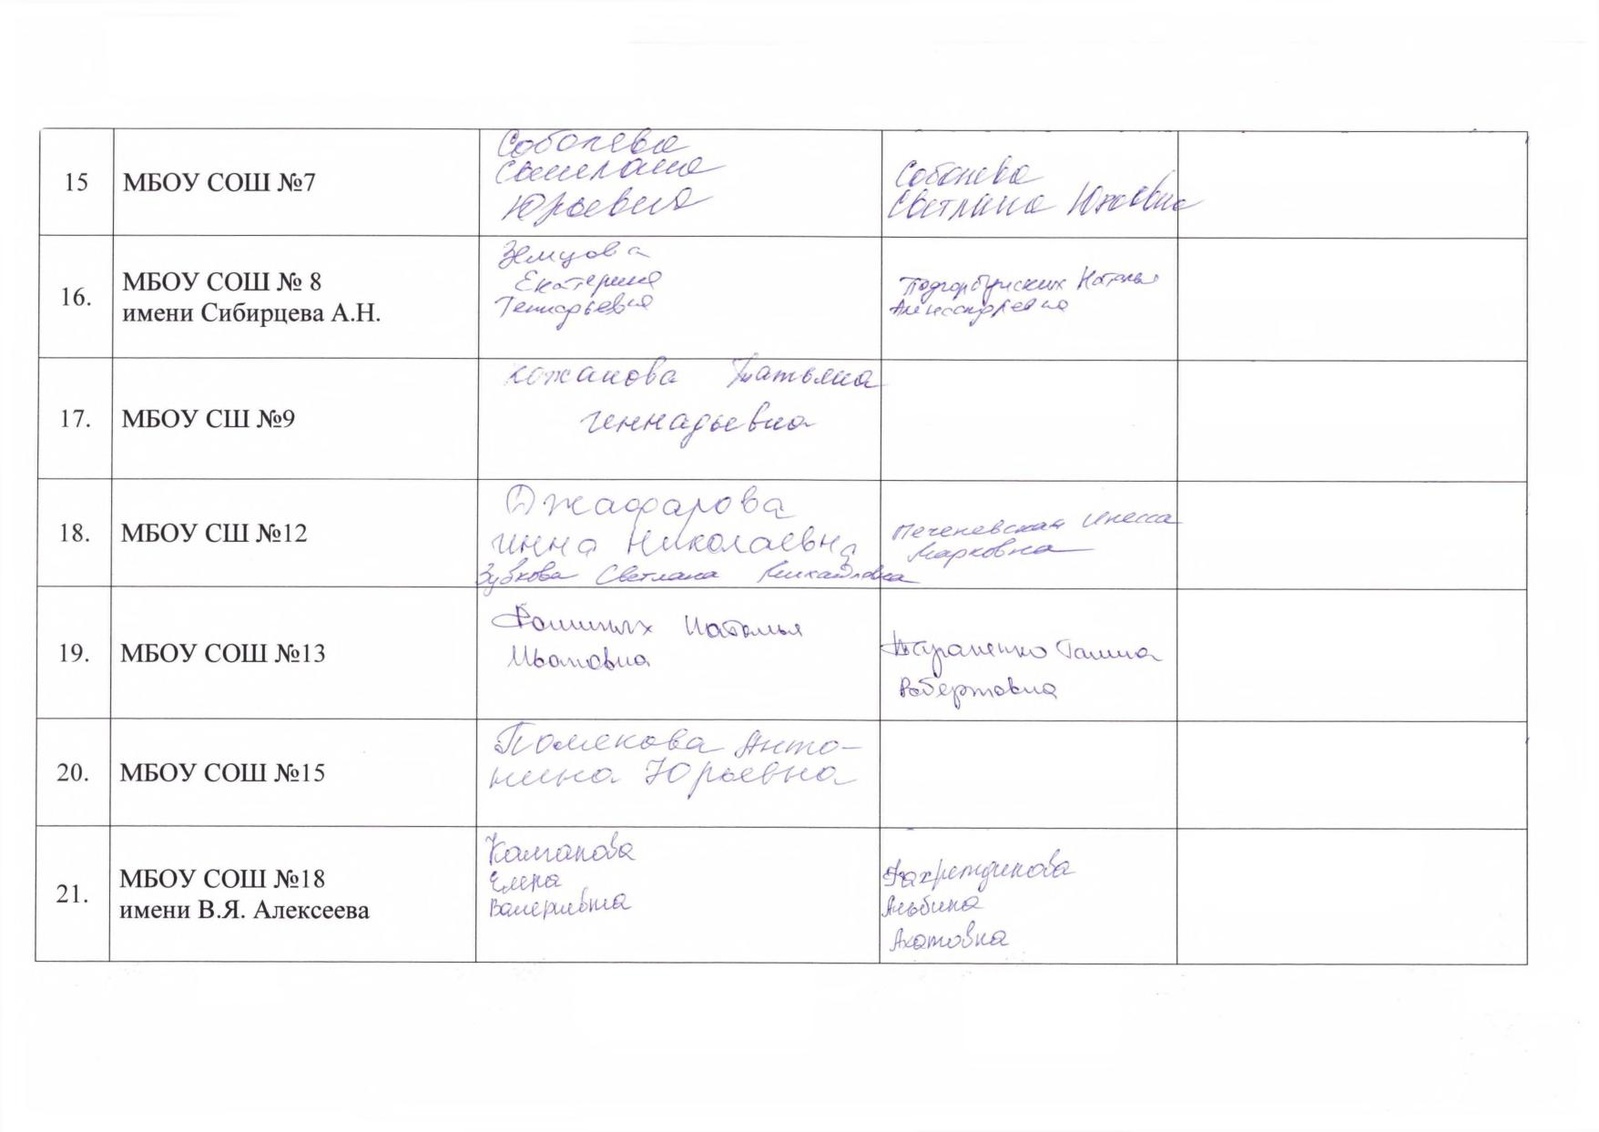 15
МБОУ СОШ №7
Соболева
Светлана
Юрьевна
Соболева
Светлана Юрьевна
16.
МБОУ СОШ № 8
имени Сибирцева А.Н.
Земцова
Екатерина
Геннадьевна
Подгорбунских Наталья
Александровна
17.
МБОУ СШ №9
Кожанова Татьяна
Геннадьевна
18.
МБОУ СШ №12
Джафарова
Инна Николаевна
Зубкова Светлана Михайловна
Печеневская Инесса
Марковна
19.
МБОУ СОШ №13
Фоминых Наталья
Ивановна
Тараненко Галина
Робертовна
20.
МБОУ СОШ №15
Полекова Анто-
нина Юрьевна
21.
МБОУ СОШ №18
имени В.Я. Алексеева
Калганова
Елена
Валерьевна
Фахретдинова
Альбина
Ахатовна